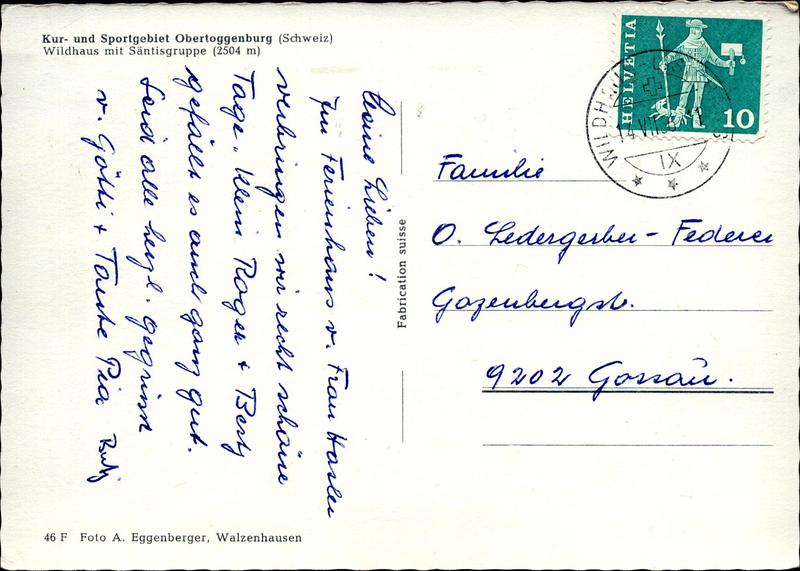 Kur- und Sportgebiet Obertoggenburg (Schweiz)
Wildhaus mit Säntisgruppe (2504 m)
Meine Lieben!
Im Ferienhaus v. Frau Hasler
verbringen wir recht schöne
Tage. Klein Roger + Berty
gefällts es auch ganz gut.
Seid alle herzl. gegrüsst
v. Götti + Tante Pia
46 F Foto A. Eggenberger, Walzenhausen
Fabrication suisse
HELVETIA
10
WILDHAUS
IX
Familie
O. Ledergerber-Federer
Gozenbergstr.
9202 Gossau.